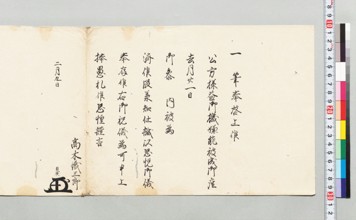 一筆奉啓上候
公方様益御機嫌能被成御座
去月廿一日
御参 内被為
済候段兼知仕誠以恐悦御儀
奉存候右御祝儀為可申上
捧愚札候恐惶謹言
二月九日
高木